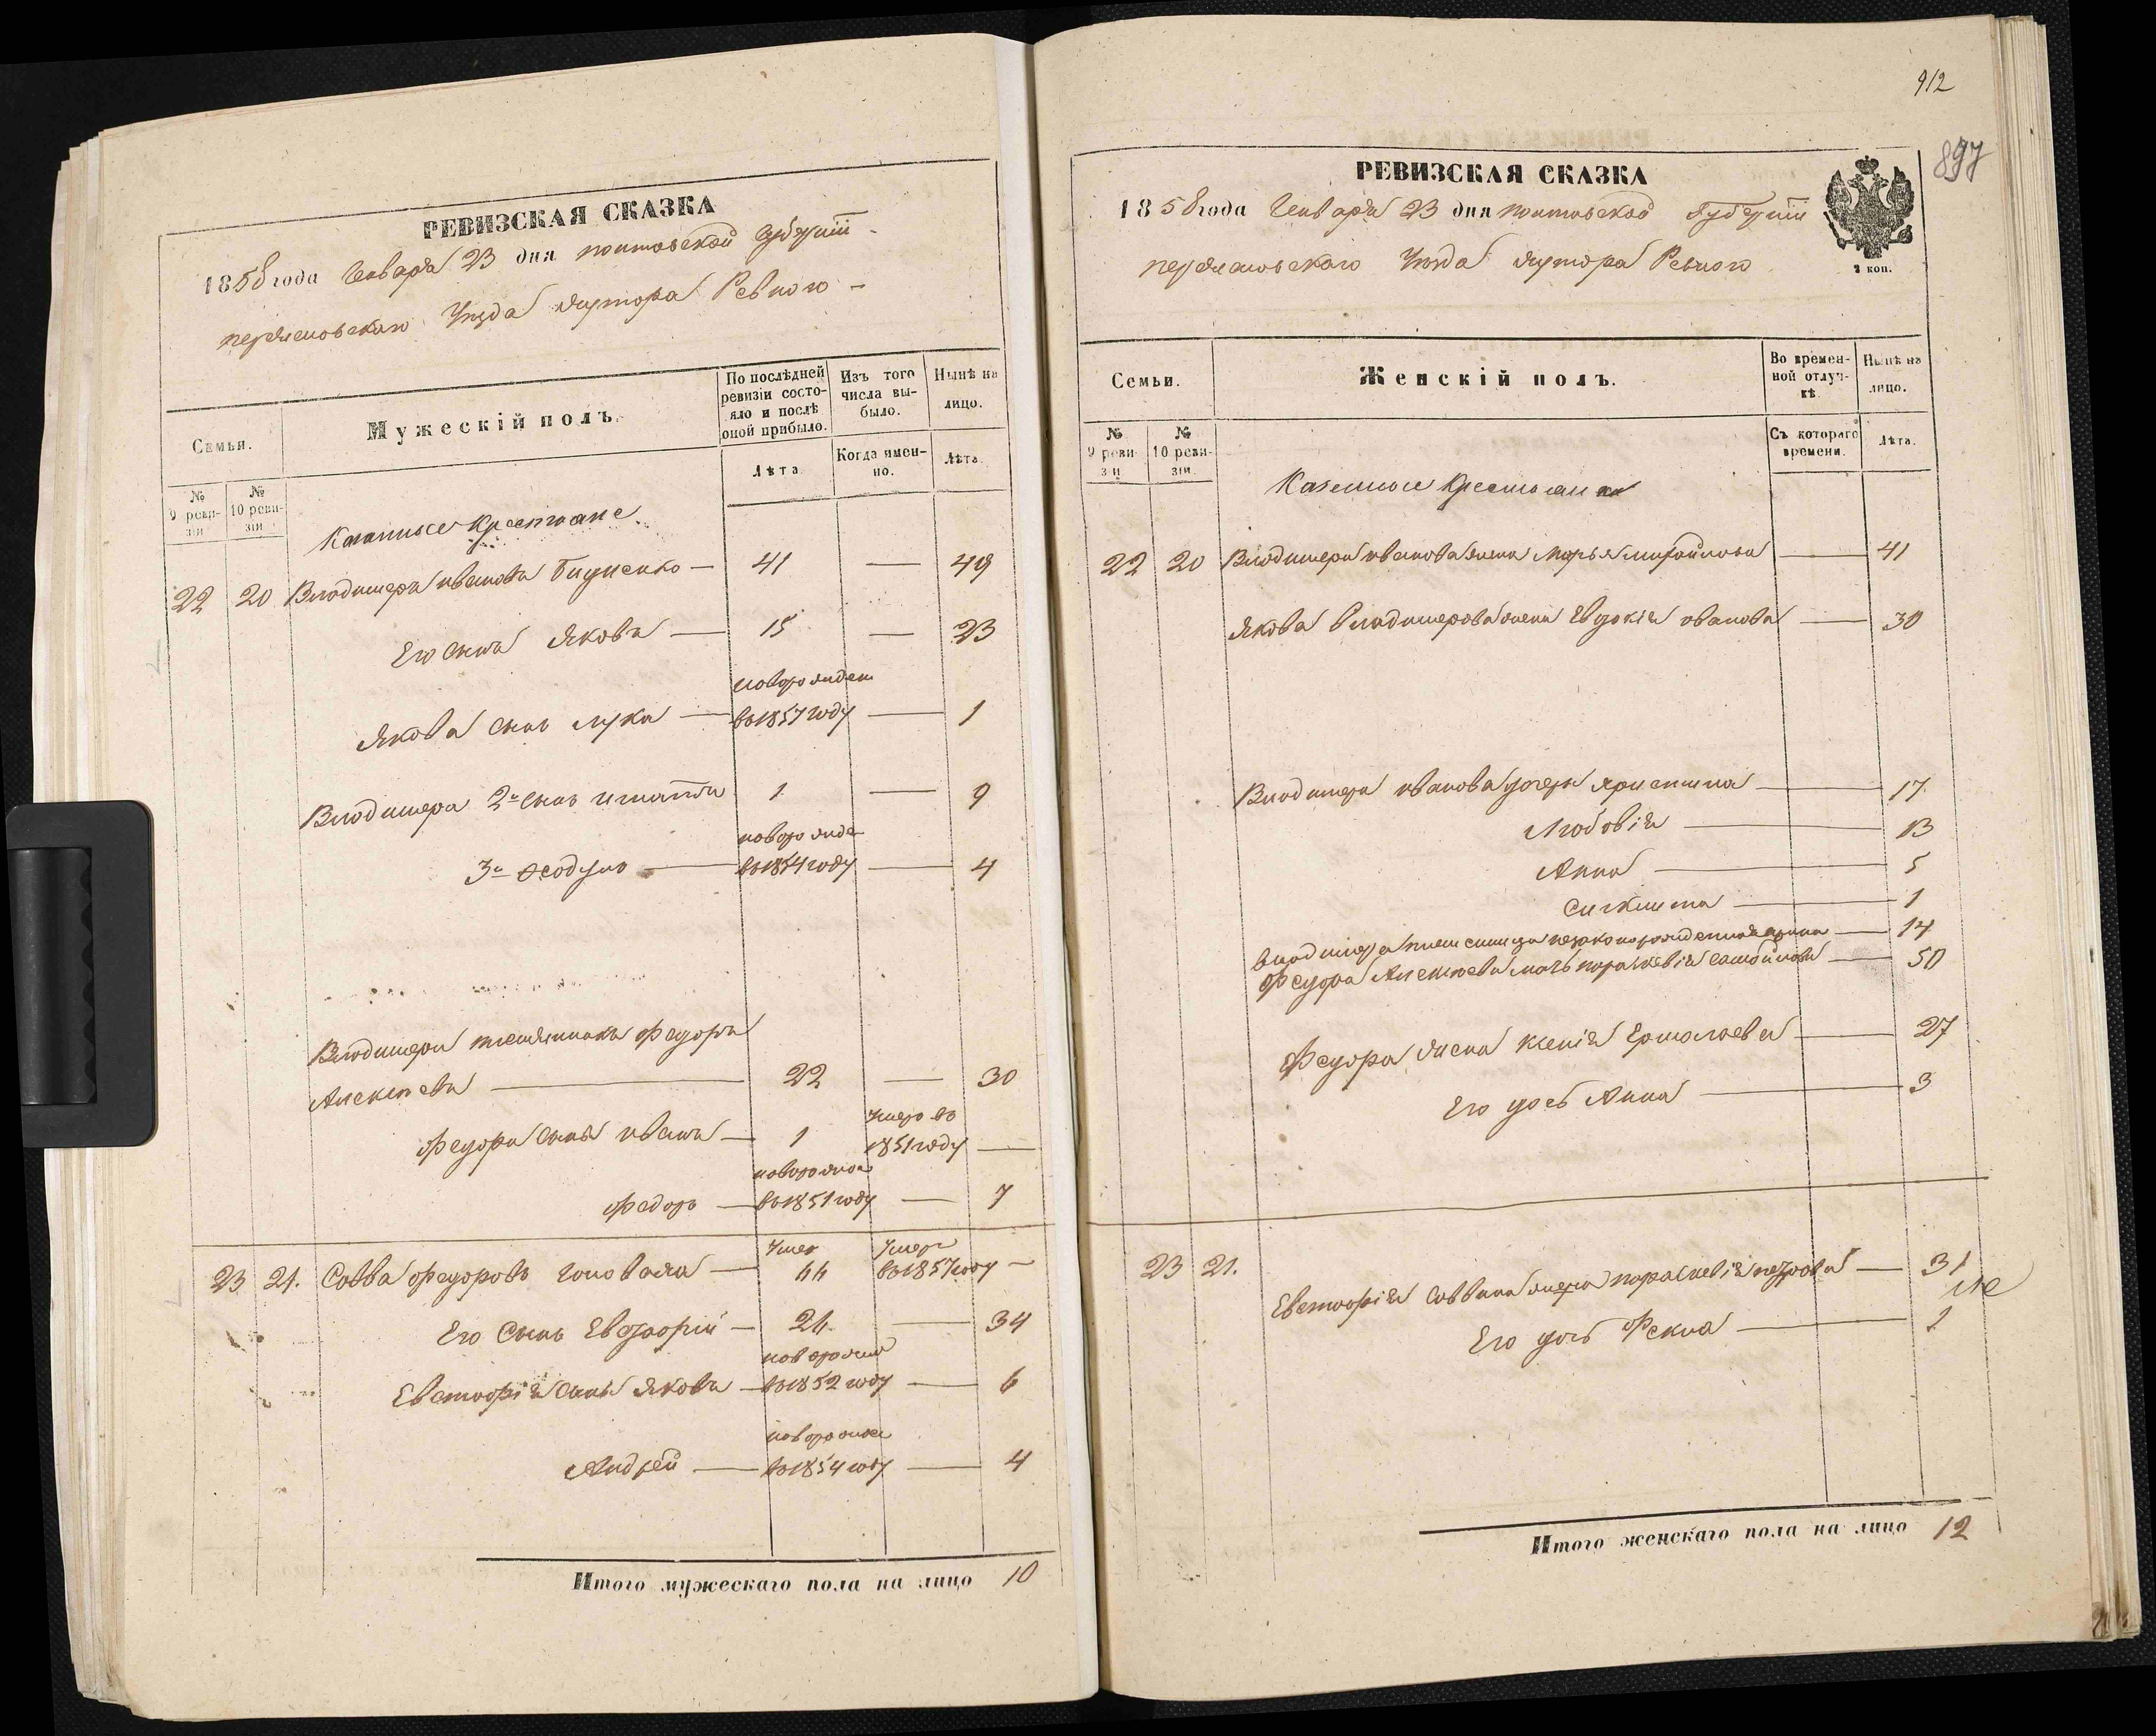 РЕВИЗСКАЯ СКАЗКА
1858 года Генваря 23 дня полтавской Губернии
переяславскаго Уезда хутора Ревного
Семьи.
Мужескій полъ.
По послѣдней ревизіи состояло и послѣ оной прибыло.
Изъ того числа выбыло.
Нынѣ на лицо.
№ 9 ревизіи
№ 10 ревизіи
Лѣта
Когда именно.
Лѣта.
Казенные Крестьяне
22 20 Владимеръ Ивановъ 41 — 49
Его сынъ Яковъ — 15 — 23
новорожден
Якова сынъ Лука — въ 1857 году — 1
Владимера 2й сынъ Игнатъ 1 — 9
новорожде
3й Федулъ — въ 1854 году — 4
Владимера племянникъ Федоръ
Алексеевъ — 22 — 30
Умеръ въ
Федора сынъ Иванъ — 1 1851 году —
новорожд
Федоръ — въ 1851 году — 7
Умер
23 21. Савва Федоровъ 44 въ 1857 году —
Его Сынъ Евстафій — 24 — 34
новорожд
Евстафія сынъ Яковъ — въ 1852 году — 6
новорожд
Андрей — въ 1854 году — 4
Итого мужескаго пола на лицо 10
912
897
РЕВИЗСКАЯ СКАЗКА
1858 года Генваря 23 дня полтавской Губернии
переяславскаго Уезда хутора Ревного
2 коп.
Семьи.
Женскій полъ.
Во временной отлучкѣ.
Нынѣ на лицо.
№ 9 ревизіи
№ 10 ревизіи
Съ котораго времени.
Лѣта.
Казенные Крестьянки
22 20 Владимера Иванова жена Марья Михайлова — 41
Якова Владимерова жена Евдокія Иванова — 30
Владимера Иванова дочери Христина — 17
Любовія — 13
Анна — 5
1
Владимера племянница — 14
Федора Алексеева мать Параскевія Самойлова — 50
Федора жена Ксенія Ермолаева — 27
Его дочь Анна — 3
23 21. Евстафія Саввина жена Параскевія Петрова — 31
Его дочь Фекла — 1
Итого женскаго пола на лицо 12